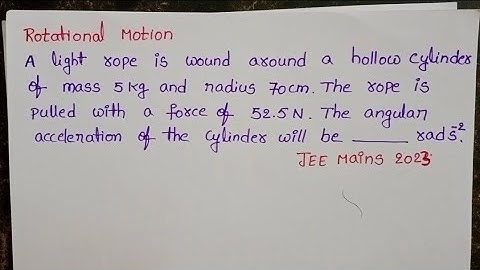 Rotational Motion
A light rope is wound around a hollow cylinder
of mass 5 kg and radius 70 cm. The rope is
pulled with a force of 52.5 N. The angular
acceleration of the cylinder will be _____ rad s⁻².
JEE Mains 2023